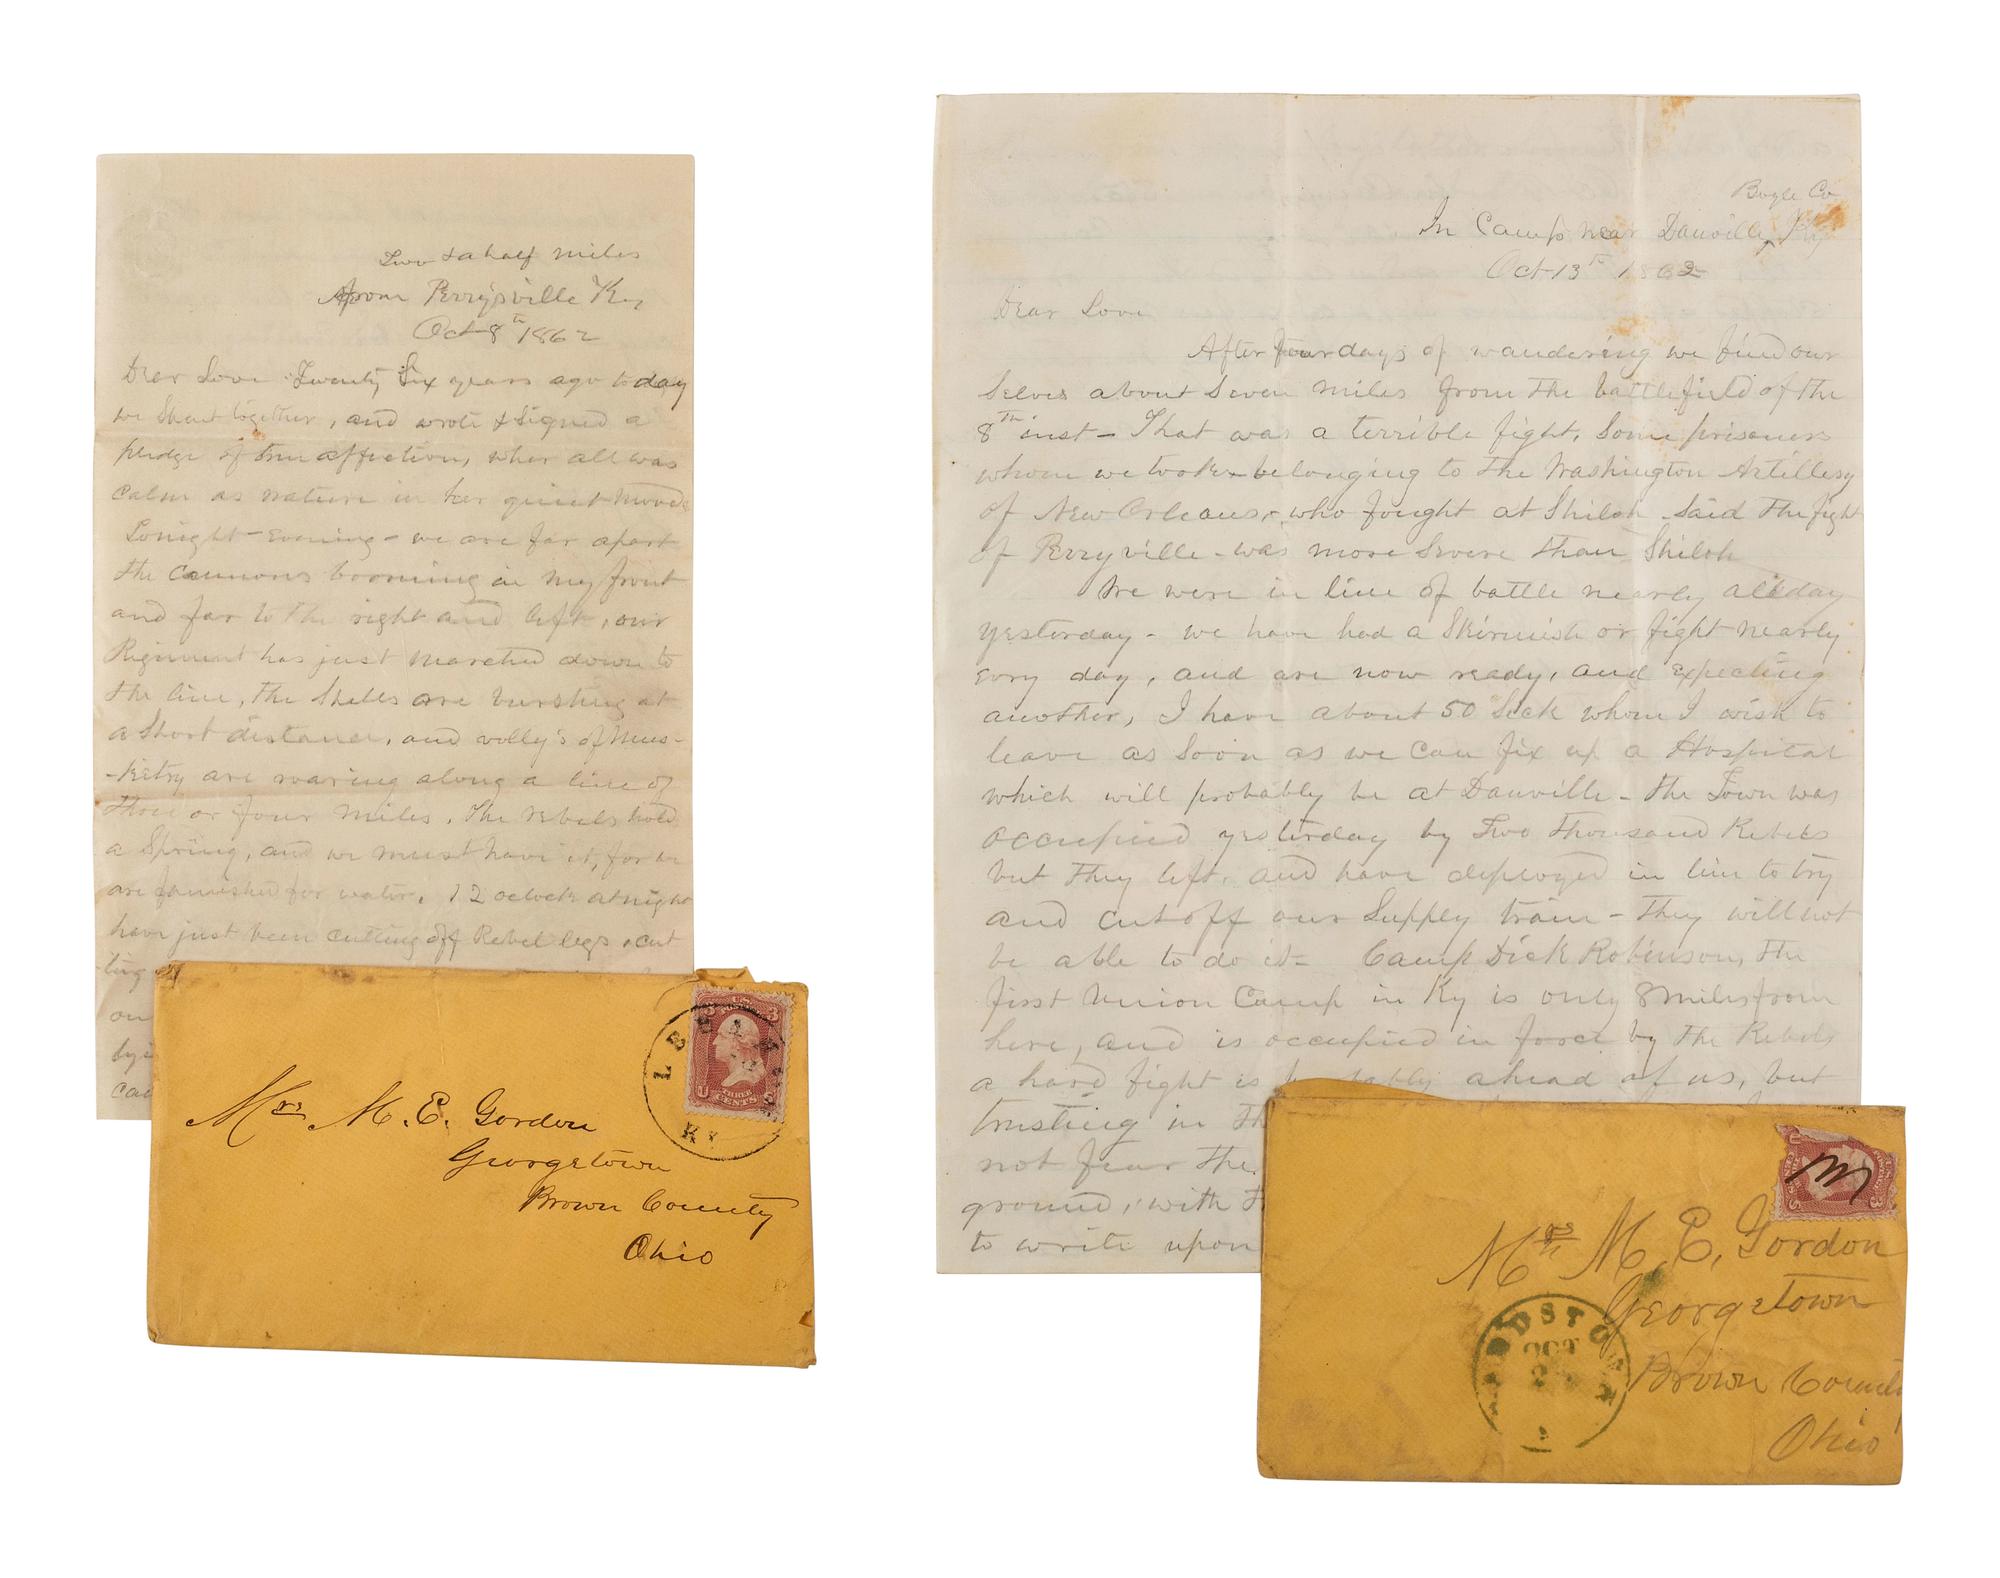 Two & a half miles
from Perrysville Ky
Oct 8th 1862
Dear Love Twenty Six years ago to day
we together, and wrote & signed a
pledge of true affection, when all was
calm as nature in her quiet moods
Tonight - Evening - we are far apart
the cannons booming in my front
and far to the right and left, our
Regiment has just marched down to
the line, the shells are bursting at
a short distance, and volly's of mus-
-ketry are roaring along a line of
three or four miles. The rebels hold
a Spring, and we must have it, for we
are famished for water. 12 oclock at night
have just been cutting off Rebel legs, cut
ting
on
Mrs. M. E. Gordon
Georgetown
Brown County
Ohio
LEBANON
KY
U.S. POSTAGE
THREE CENTS
Boyle Co
In Camp near Danville, Ky
Oct 13th 1862
Dear Love
After four days of wandering we find our
selves about seven miles from the battlefield of the
8th inst - That was a terrible fight. Some prisoners
whom we took belonging to the Washington Artillery
of New Orleans, who fought at Shiloh said the fight
of Perryville - was more severe than Shiloh
We were in line of battle nearly all day
yesterday - we have had a skirmish or fight nearly
evry day, and are now ready, and expecting
another, I have about 50 sick whom I wish to
leave as soon as we can fix up a Hospital
which will probably be at Danville - the Town was
occupied yesterday by Two thousand Rebels
but they left, and have deployed in line to try
and cut off our supply train - They will not
be able to do it - Camp Dick Robinson, the
first Union Camp in Ky is only 8 miles from
here, and is occupied in force by the Rebels
a hard fight is probably ahead of us, but
trusting in
not fear the
ground, with
to write upon
Mrs M. E. Gordon
Georgetown
Brown County
Ohio
OCT